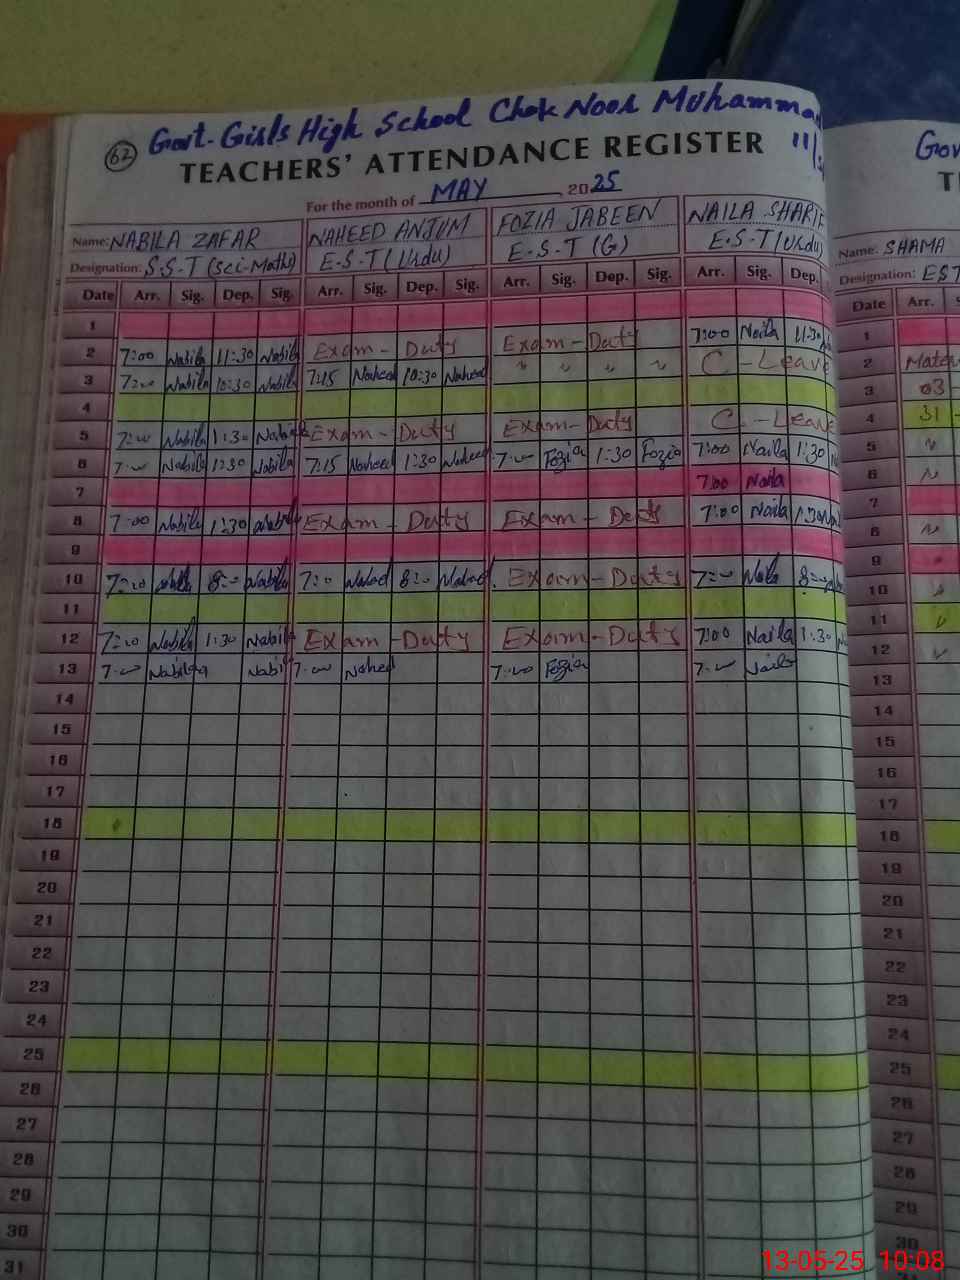 Govt. Girls High School Chak Noor Muhamma
62 TEACHERS' ATTENDANCE REGISTER 11/
For the month of MAY 2025
Name: NABILA ZAFAR NAHEED ANJUM FOZIA JABEEN NAILA SHARIF
Designation: S.S.T (Sci-Math) E.S.T (Urdu) E.S.T (G) E.S.T (Urdu)
Date Arr. Sig. Dep. Sig. Arr. Sig. Dep. Sig. Arr. Sig. Dep. Sig. Arr. Sig. Dep.
1
2 7:00 Nabila 11:30 Nabila Exam - Duty Exam - Duty 7:00 Naila 11:30
3 7:00 Nabila 10:30 Nabila 7:15 Naheed 10:30 Naheed " " " " C - Leave
4
5 7:00 Nabila 1:30 Nabila Exam - Duty Exam - Duty C. - Leave
6 7:00 Nabila 1:30 Nabila 7:15 Naheed 1:30 Naheed 7:00 Fozia 1:30 Fozia 7:00 Naila 1:30
7 7:00 Naila
8 7:00 Nabila 1:30 Nabila Exam - Duty Exam - Duty 7:00 Naila 1:30
9
10 7:00 Nabila 8:00 Nabila 7:0 Naheed 8:0 Naheed Exam - Duty 7:00 Naila 8:00
11
12 7:00 Nabila 1:30 Nabila Exam - Duty Exam - Duty 7:00 Naila 1:30
13 7:00 Nabila Nabila 7:00 Naheed 7:00 Fozia 7:00 Naila
14
15
16
17
18
19
20
21
22
23
24
25
26
27
28
29
30
31
Gov
T
Name: SHAMA
Designation: EST
Date Arr.
1
2 Mater
3 03 -
4 31 -
5 "
6 "
7
8 "
9
10 "
11 "
12 "
13
14
15
16
17
18
19
20
21
22
23
24
25
26
27
28
29
30
13-05-25 10:08